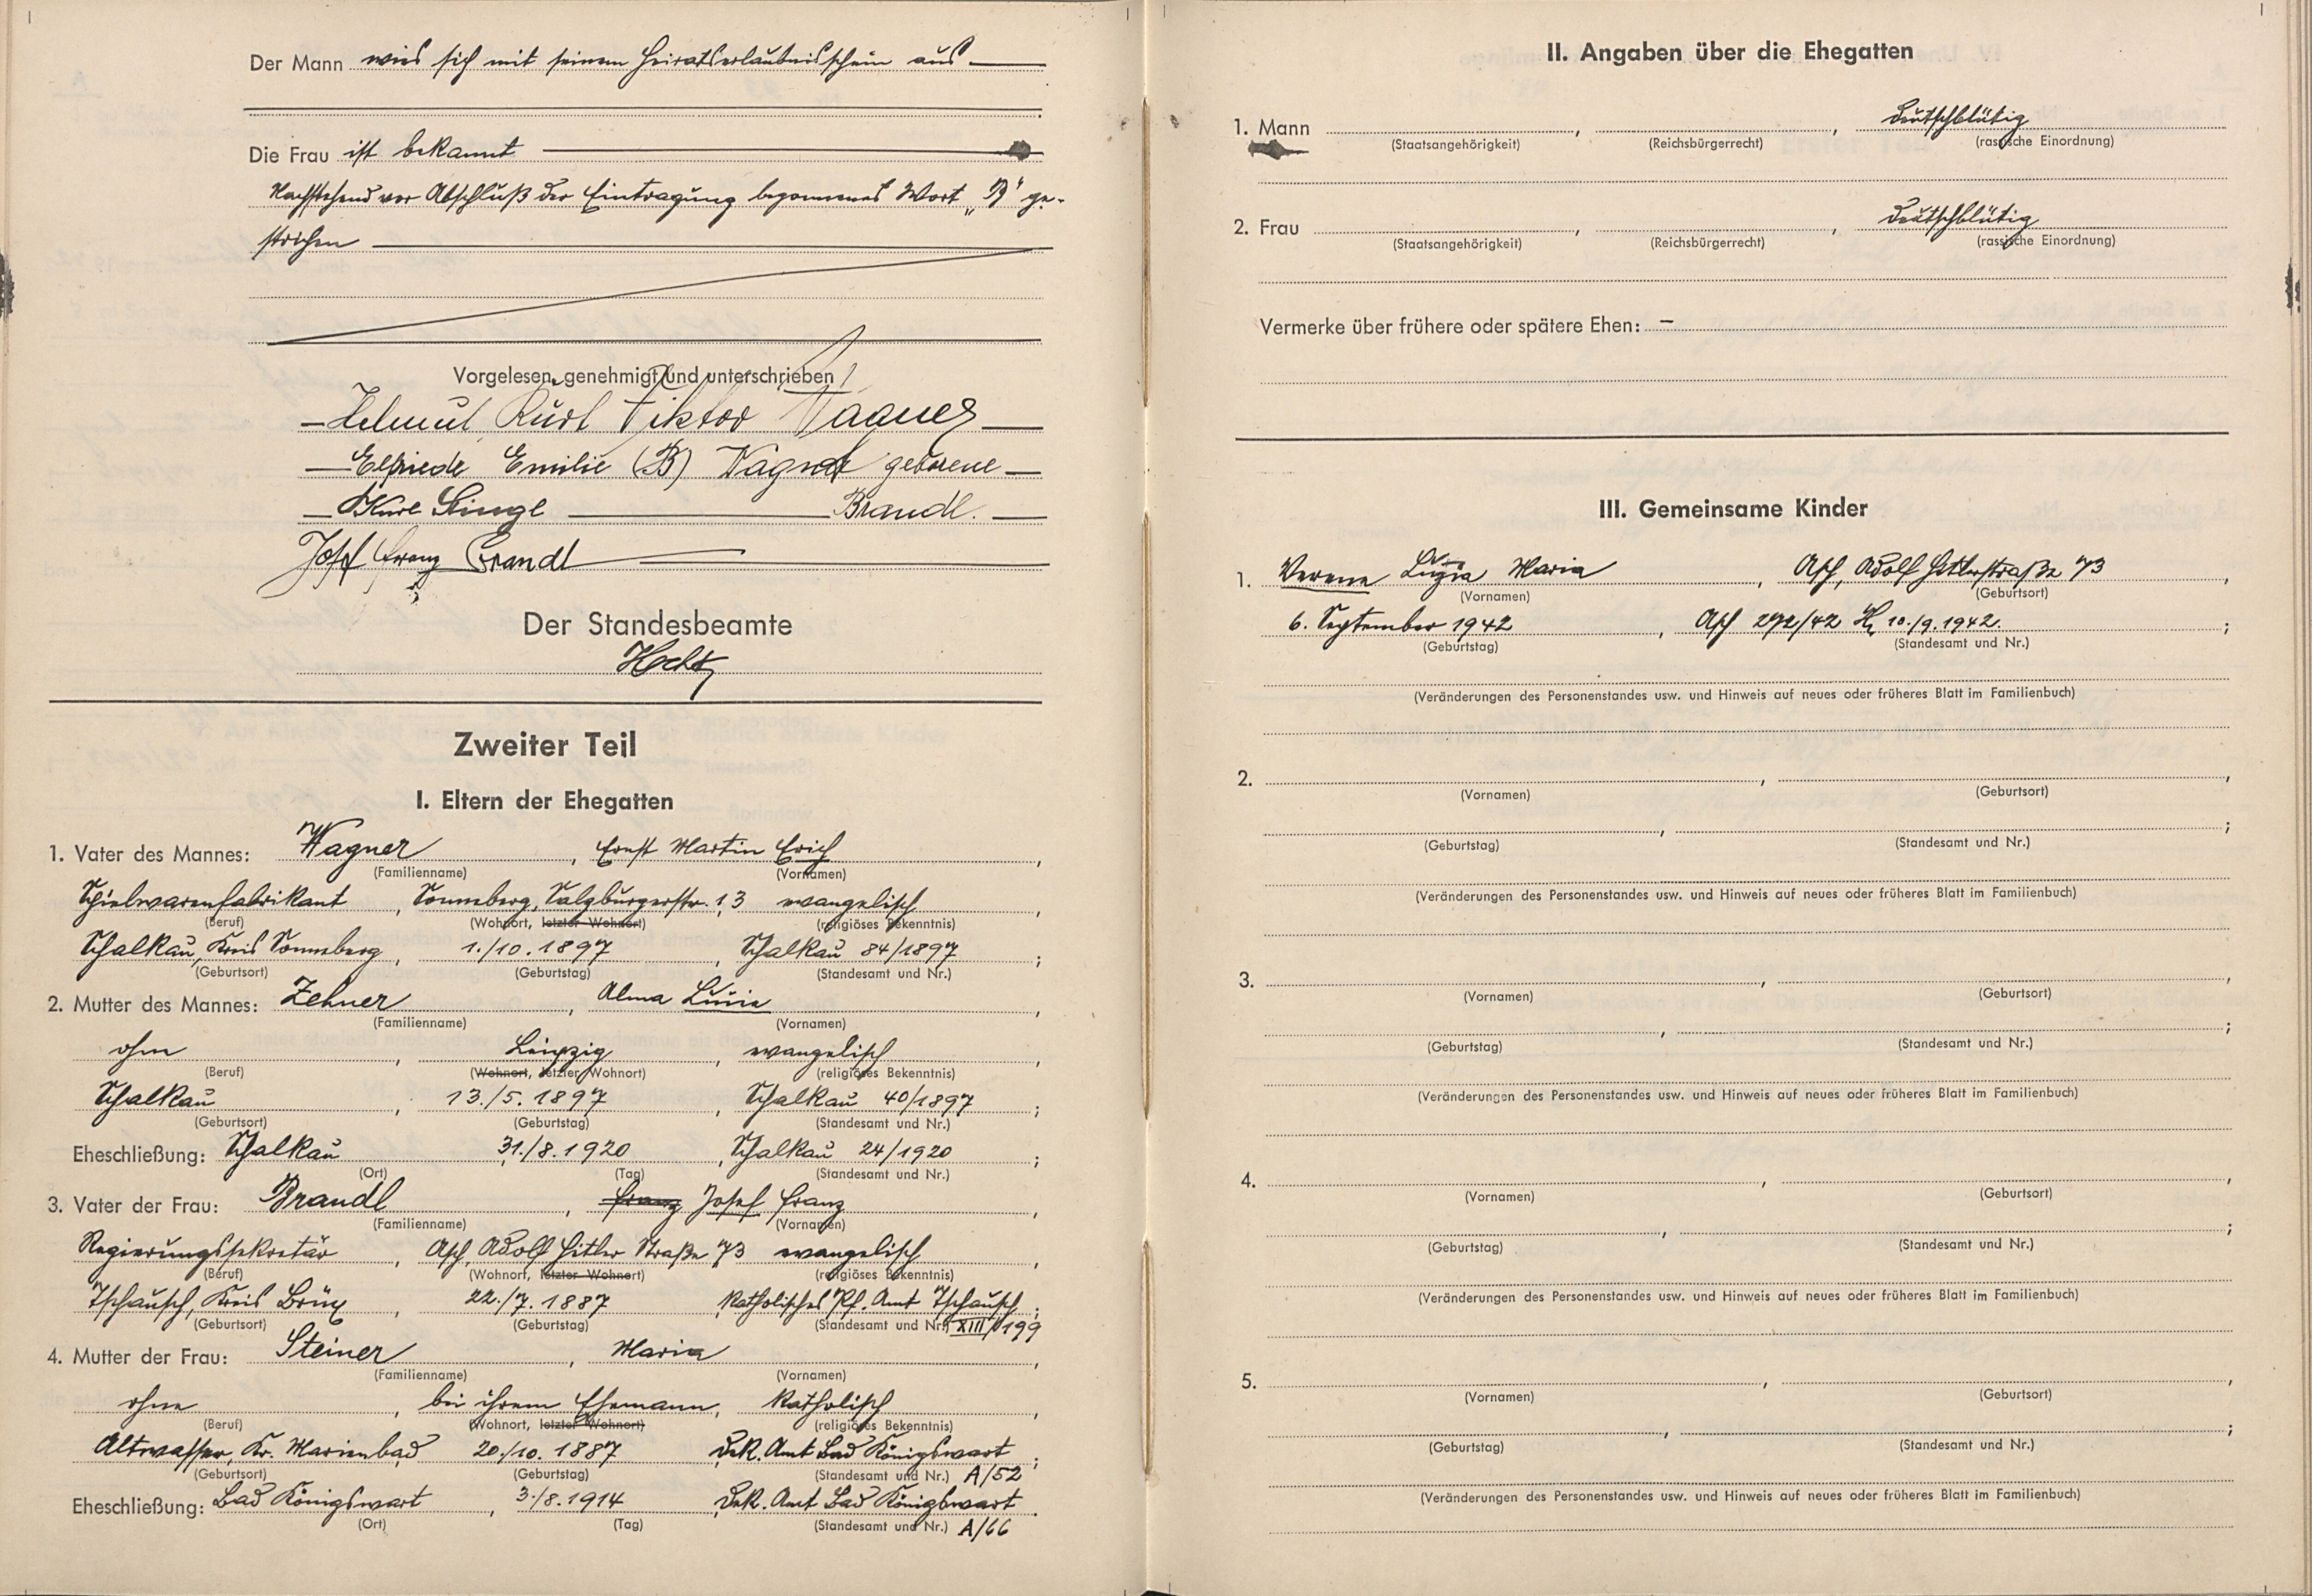 Der Mann wies sich mit seinem Heiratserlaubnisschein aus
Die Frau ist bekannt
Nachstehend vor Abschluß der Eintragung begonnenes Wort „B" ge-
strichen
Vorgelesen, genehmigt und unterschrieben
Helmut Kurt Viktor Wagner
Elfriede Emilie (B) Wagner geborene
Karl Brandl.
Josef Franz Brandl
Der Standesbeamte
Zweiter Teil
I. Eltern der Ehegatten
1. Vater des Mannes: Wagner, Ernst Martin Erich,
(Familienname) (Vornamen)
Spielwarenfabrikant, Sonneberg, Salzburgerstr. 13 evangelisch,
(Beruf) (Wohnort, letzter Wohnort) (religiöses Bekenntnis)
Schalkau, Kreis Sonneberg, 1./10. 1897, Schalkau 84/1897;
(Geburtsort) (Geburtstag) (Standesamt und Nr.)
2. Mutter des Mannes: Zehner, Alma Luise,
(Familienname) (Vornamen)
ohne, Leipzig, evangelisch,
(Beruf) (Wohnort, letzter Wohnort) (religiöses Bekenntnis)
Schalkau, 13./5. 1897, Schalkau 40/1897;
(Geburtsort) (Geburtstag) (Standesamt und Nr.)
Eheschließung: Schalkau 31./8. 1920, Schalkau 24/1920;
(Ort) (Tag) (Standesamt und Nr.)
3. Vater der Frau: Brandl, Franz Josef Franz,
(Familienname) (Vornamen)
Regierungssekretär, Asch, Adolf Hitler Straße 73 evangelisch,
(Beruf) (Wohnort, letzter Wohnort) (religiöses Bekenntnis)
Tschausch, Kreis Brüx, 22./7. 1887 Katholisches Pf. Amt Tschausch;
(Geburtsort) (Geburtstag) (Standesamt und Nr.) XIII/199
4. Mutter der Frau: Steiner, Maria,
(Familienname) (Vornamen)
ohne, bei ihrem Ehemann, katholisch,
(Beruf) (Wohnort, letzter Wohnort) (religiöses Bekenntnis)
Altwasser, Kr. Marienbad 20./10. 1887 Dek. Amt Bad Königswart;
(Geburtsort) (Geburtstag) (Standesamt und Nr.) A/52
Eheschließung: Bad Königswart, 3./8. 1914, Dek. Amt Bad Königswart.
(Ort) (Tag) (Standesamt und Nr.) A/66
II. Angaben über die Ehegatten
1. Mann , , deutschblütig
(Staatsangehörigkeit) (Reichsbürgerrecht) (rassische Einordnung)
2. Frau , , deutschblütig
(Staatsangehörigkeit) (Reichsbürgerrecht) (rassische Einordnung)
Vermerke über frühere oder spätere Ehen: –
III. Gemeinsame Kinder
1. Verena Maria, Asch, Adolf Hitlerstraße 73,
(Vornamen) (Geburtsort)
6. September 1942, Asch 292/42 10./9. 1942.;
(Geburtstag) (Standesamt und Nr.)
(Veränderungen des Personenstandes usw. und Hinweis auf neues oder früheres Blatt im Familienbuch)
2. , ,
(Vornamen) (Geburtsort)
, ;
(Geburtstag) (Standesamt und Nr.)
(Veränderungen des Personenstandes usw. und Hinweis auf neues oder früheres Blatt im Familienbuch)
3. , ,
(Vornamen) (Geburtsort)
, ;
(Geburtstag) (Standesamt und Nr.)
(Veränderungen des Personenstandes usw. und Hinweis auf neues oder früheres Blatt im Familienbuch)
4. , ,
(Vornamen) (Geburtsort)
, ;
(Geburtstag) (Standesamt und Nr.)
(Veränderungen des Personenstandes usw. und Hinweis auf neues oder früheres Blatt im Familienbuch)
5. , ,
(Vornamen) (Geburtsort)
, ;
(Geburtstag) (Standesamt und Nr.)
(Veränderungen des Personenstandes usw. und Hinweis auf neues oder früheres Blatt im Familienbuch)